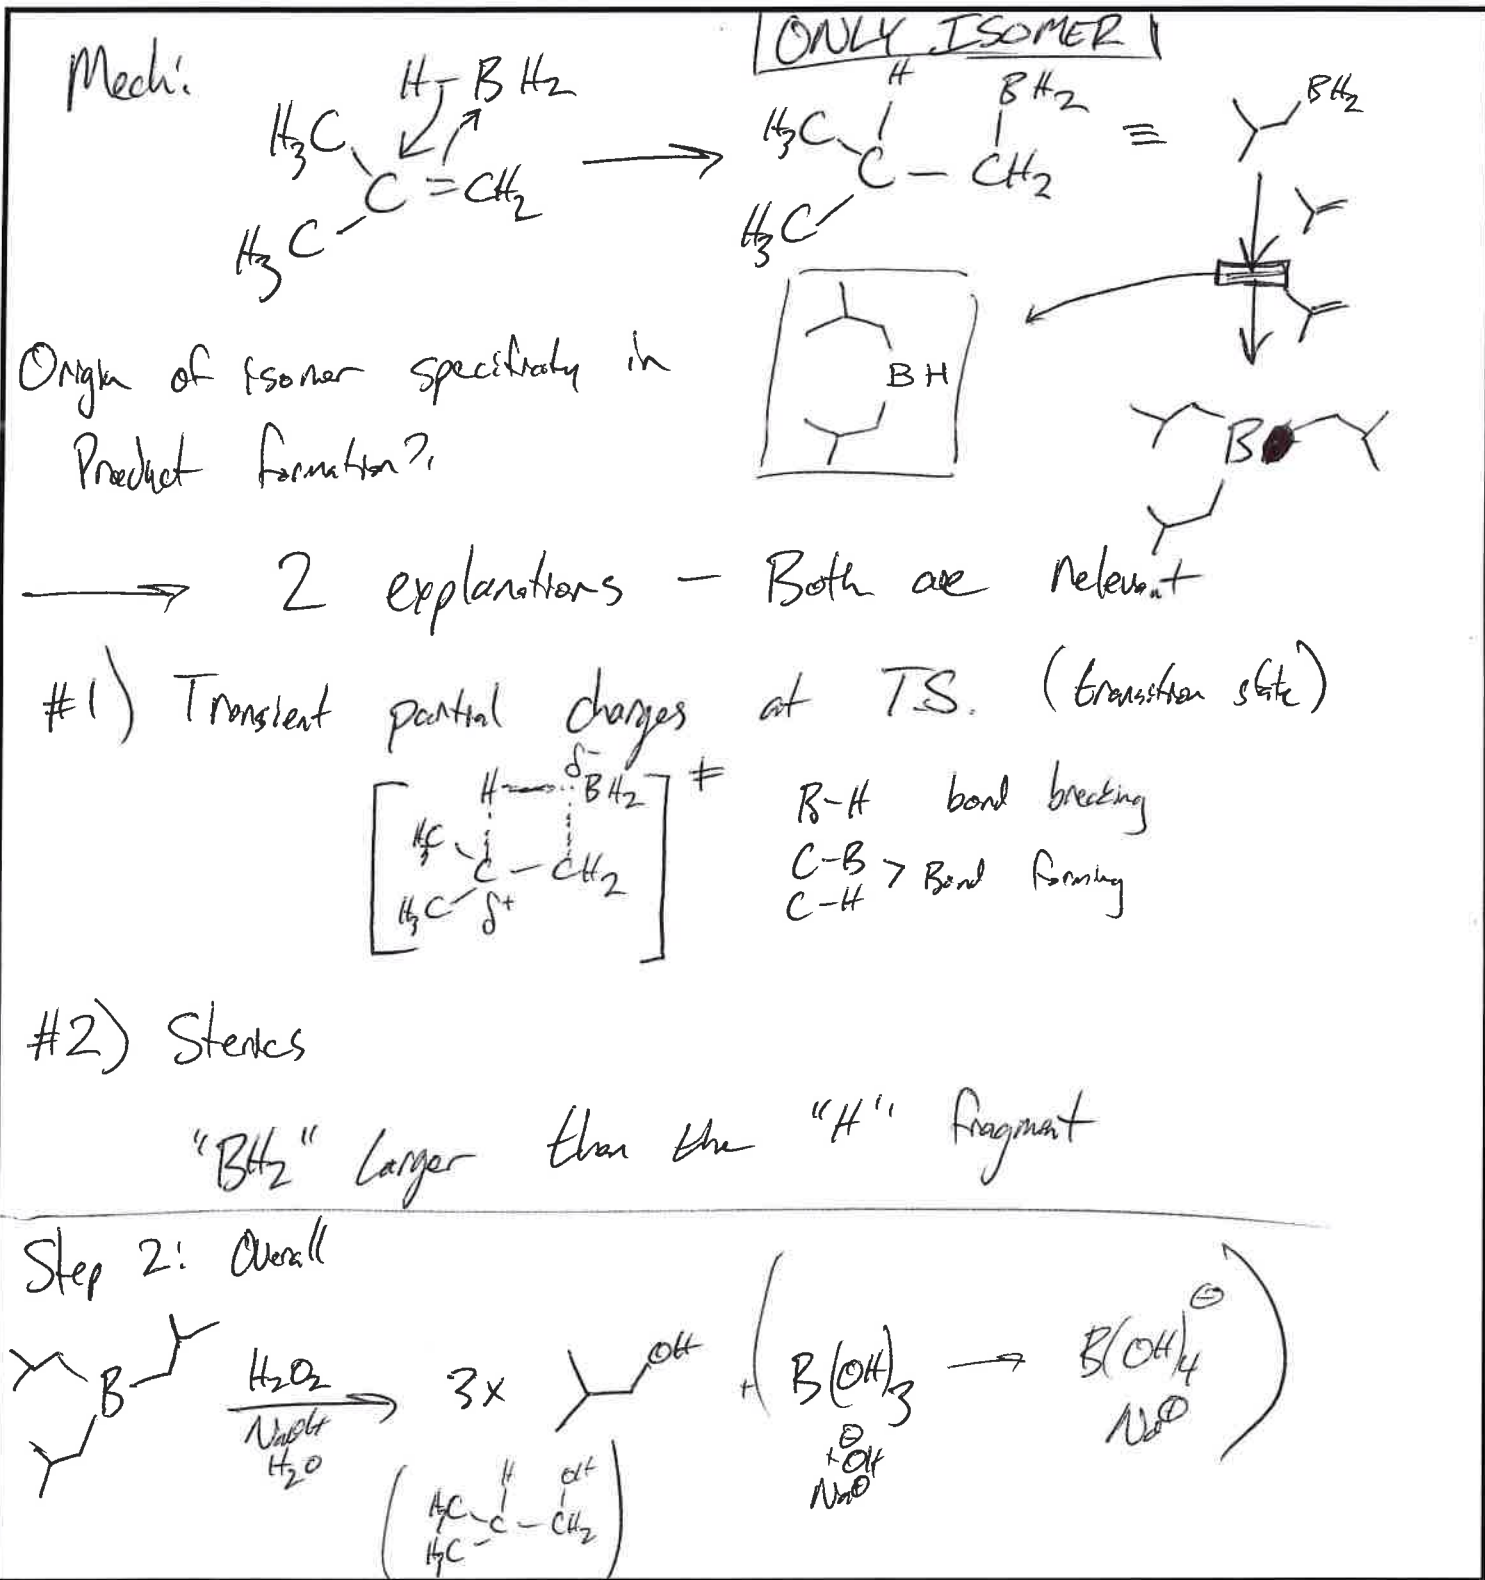 Mech:
ONLY ISOMER
H–BH2
H3C
C=CH2
H3C
H
BH2
H3C
C – CH2
H3C
≡
BH2
BH
Origin of isomer specificity in
Product formation?
B
→ 2 explanations – Both are relevant
#1) Transient partial charges at T.S. (transition state)
δ-
H BH2 ‡
H3C
C – CH2
H3C δ+
B–H bond breaking
C–B
C–H > Bond forming
#2) Sterics
"BH2" larger than the "H" fragment
Step 2: Overall
B
H2O2
NaOH
H2O
3x
OH
+ (B(OH)3 → B(OH)4⊖)
+ ⊖OH
Na⊕
Na⊕
H OH
H3C
C – CH2
H3C